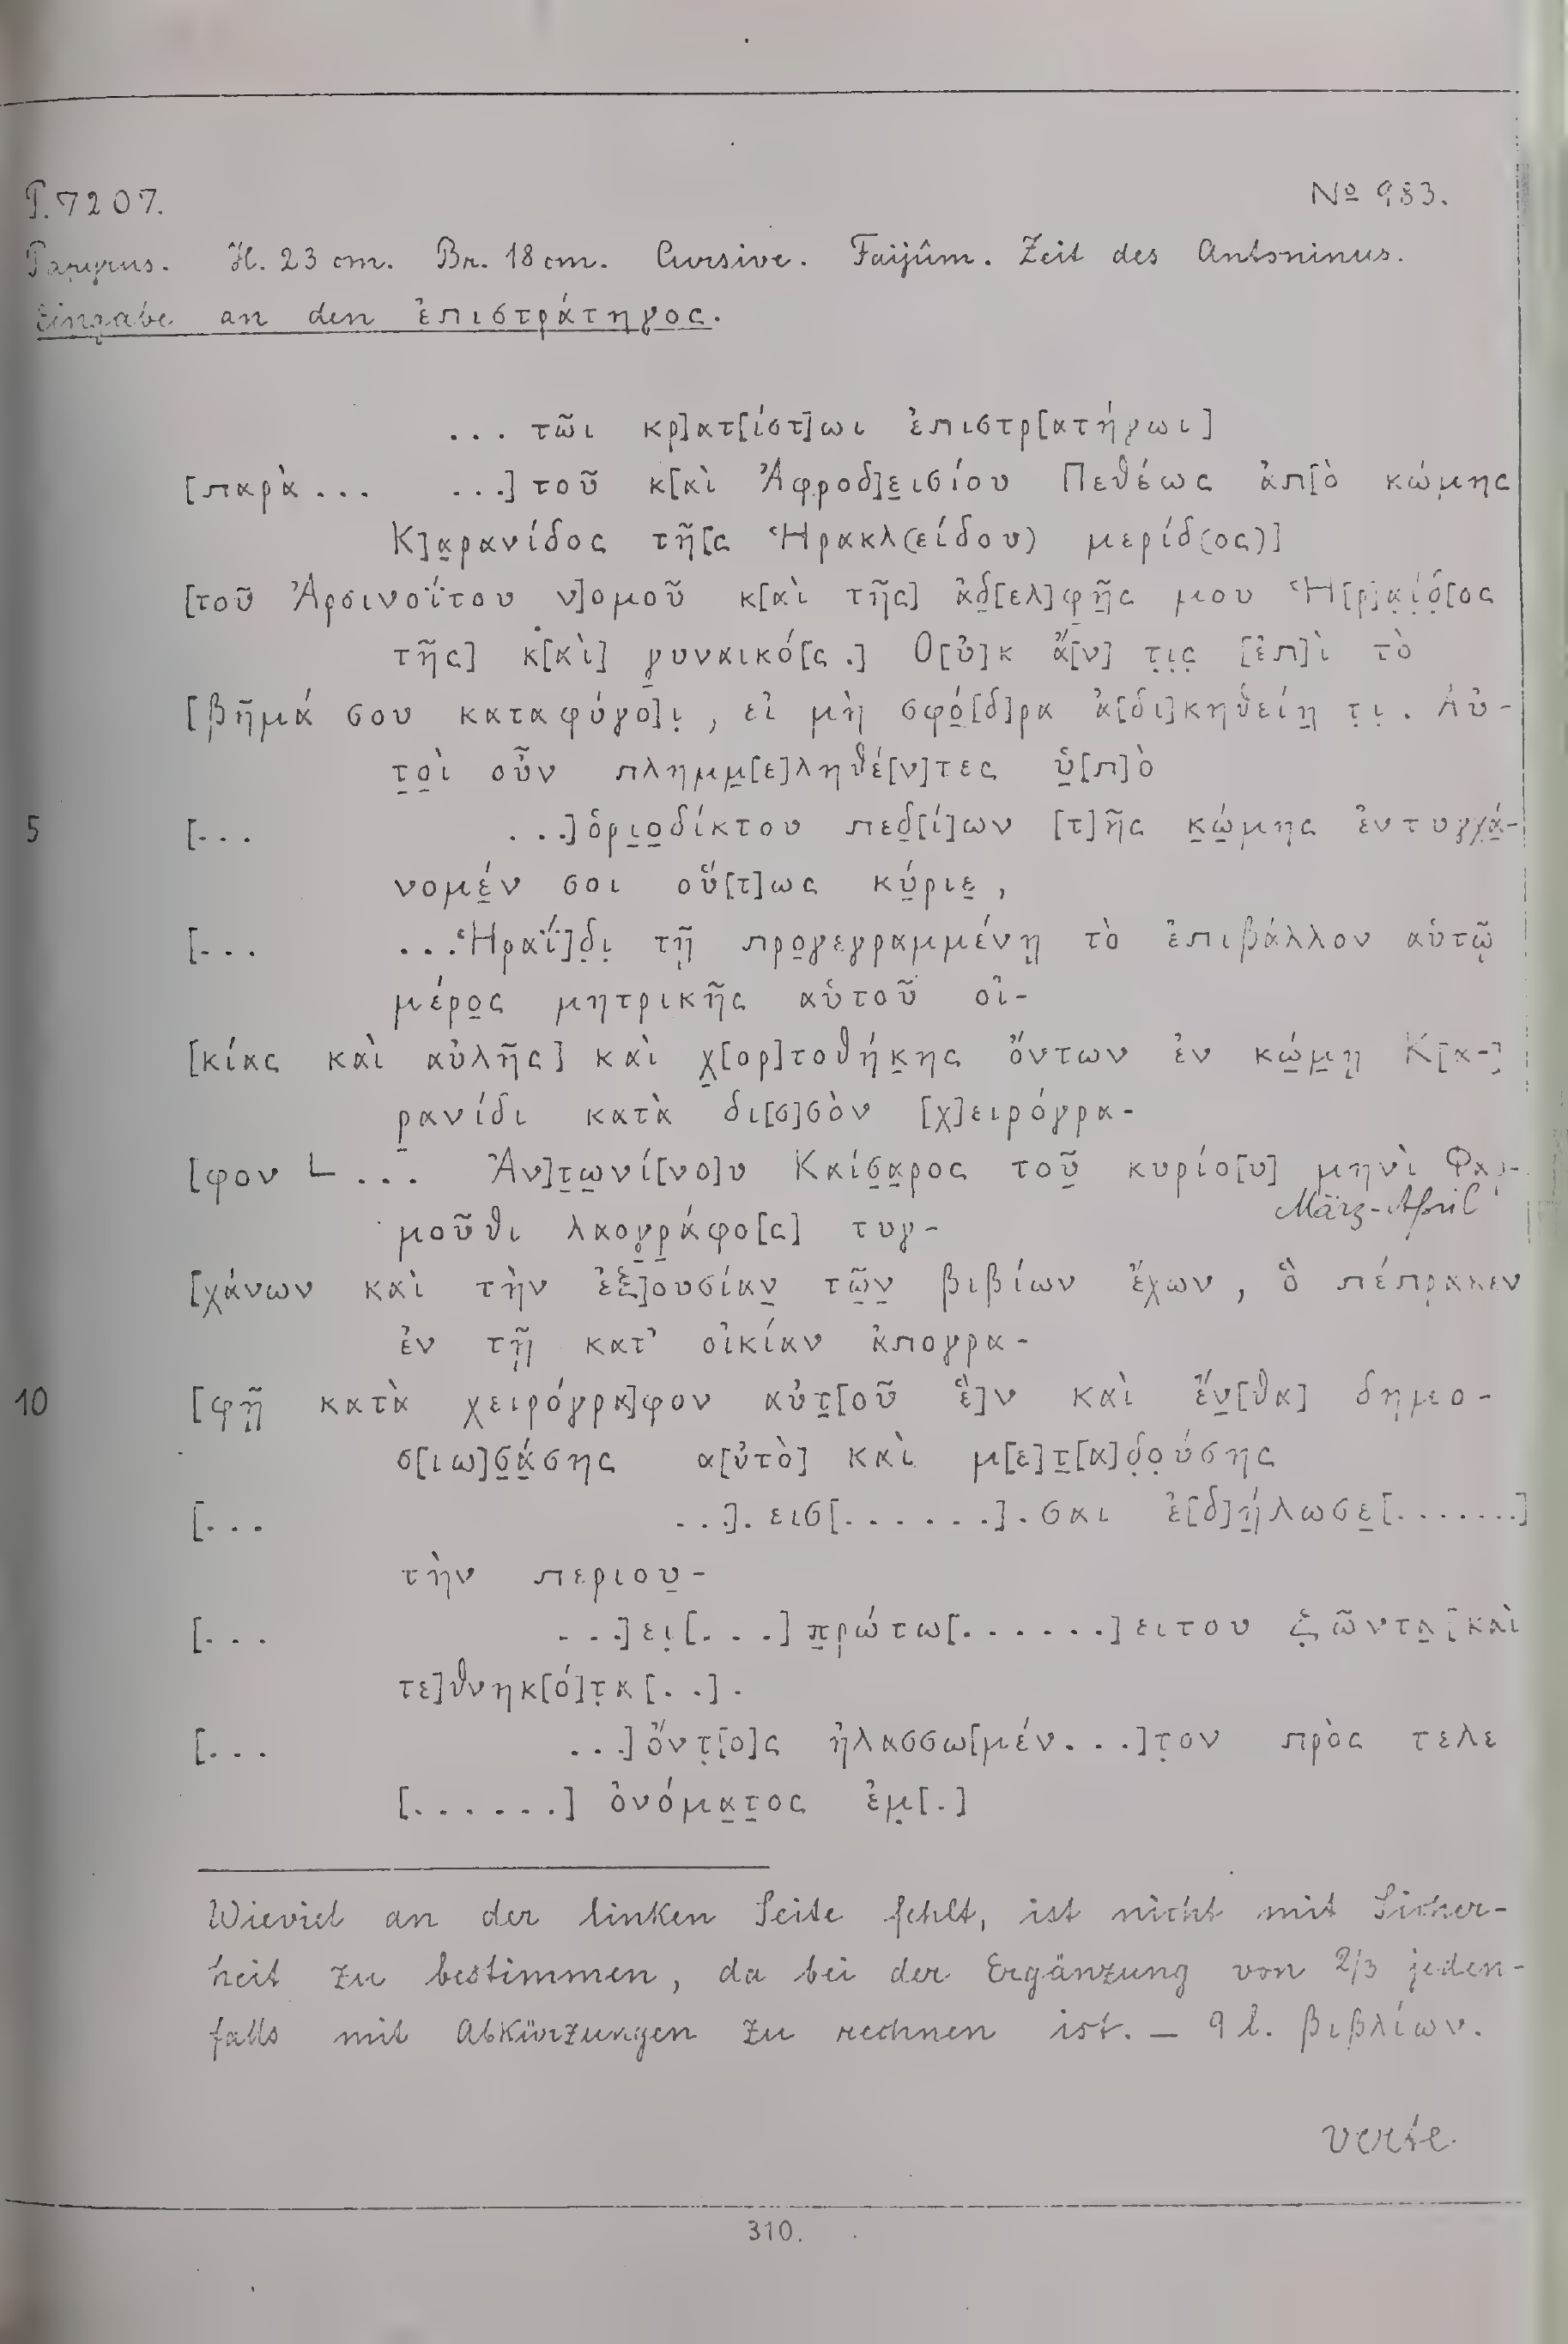 P. 7207. № 983.
Papyrus. H. 23 cm. Br. 18 cm. Cursive. Faijûm. Zeit des Antoninus.
Eingabe an den ἐπιστράτηγος.
... τῶι κρ]ατ[ίστ]ωι ἐπιστρ[ατήγωι]
[παρὰ ... ...] τοῦ κ[αὶ Ἀφροδ]ε̣ισίου Πεθέως ἀπ[ὸ κώμης
Κ]α̣ρανίδος τῆ[ς Ἡρακλ(είδου) μερίδ(ος)]
[τοῦ Ἀρσινοΐτου ν]ομοῦ κ[αὶ τῆς] ἀδ̣[ελ]φ̣ῆ̣ς μου Ἡ[ρ]α̣ί̣δ̣[ος
τῆς] κ[αὶ] γ̣υναικό[ς.] Ο[ὐ]κ ἄ[ν] τ̣ι̣ς̣ [ἐπ]ὶ τὸ
[βῆμά σου καταφύγο]ι̣, εἰ μὴ σφό̣[δ]ρα ἀ[δι]κηθείη̣ τ̣ι̣. Αὐ-
τ̣ο̣ὶ οὖν πλημμ̣[ε]ληθέ[ν]τες ὑ̣[π]ὸ
5 [... ...] ὁρι̣ο̣δίκτου πεδ̣[ί]ων [τ]ῆς κ̣ώ̣μης ἐντυγχά̣-
νομέ̣ν σοι οὕ[τ]ως κύ̣ριε̣,
[... ... Ἡραΐ]δ̣ι̣ τῇ προ̣γεγραμμένῃ τὸ ἐπιβάλλον αὐτῷ
μέρο̣ς μητρικῆς αὐτοῦ οἰ-
[κίας καὶ αὐλῆς] καὶ χ̣[ορ]τοθήκ̣ης ὄντων ἐν κώ̣μ̣ῃ Κ[α-]
ρ̣ανίδι κατὰ δι[σ]σὸν [χ]ειρόγρα-
[φον L ... Ἀν]τ̣ω̣νί[νο]υ Καίσ̣α̣ρος τοῦ̣ κυρίο[υ] μηνὶ Φαρ-
März-April
μοῦθι λαογ̣ρ̣άφο[ς] τυγ-
[χάνων καὶ τὴν ἐξ]ουσίαν̣ τῶ̣ν̣ βιβίων ἔχων, ὃ πέπρακεν
ἐν τῇ κατ’ οἰκίαν ἀπογρα-
10 [φῇ κατὰ χειρόγρα]φον αὐτ̣[οῦ ἓ]ν καὶ ἔν̣[θα] δημο-
σ[ιω]σ̣ά̣σης α[ὐτὸ] καὶ μ[ε]τ̣[α]δ̣ο̣ύσης
[... ...]. εισ[.......]. σαι ἐ[δ]ή̣λωσε̣[.......]
τὴν περιου̣-
[... ...]ει̣[....] π̣ρώτω[.......]ειτου ζ̣ῶντα̣ [καὶ
τε]θνηκ[ό]τ̣α[..].
[... ...] ὄντ̣[ο]ς ἠλασσω[μέν....]τ̣ον πρὸς τελε
[.......] ὀνόμα̣τ̣ος ἐμ̣[.]
Wieviel an der linken Seite fehlt, ist nicht mit Sicher-
heit zu bestimmen, da bei der Ergänzung von 2/3 jeden-
falls mit Abkürzungen zu rechnen ist. — 9 l. βιβλίων.
verte
310.